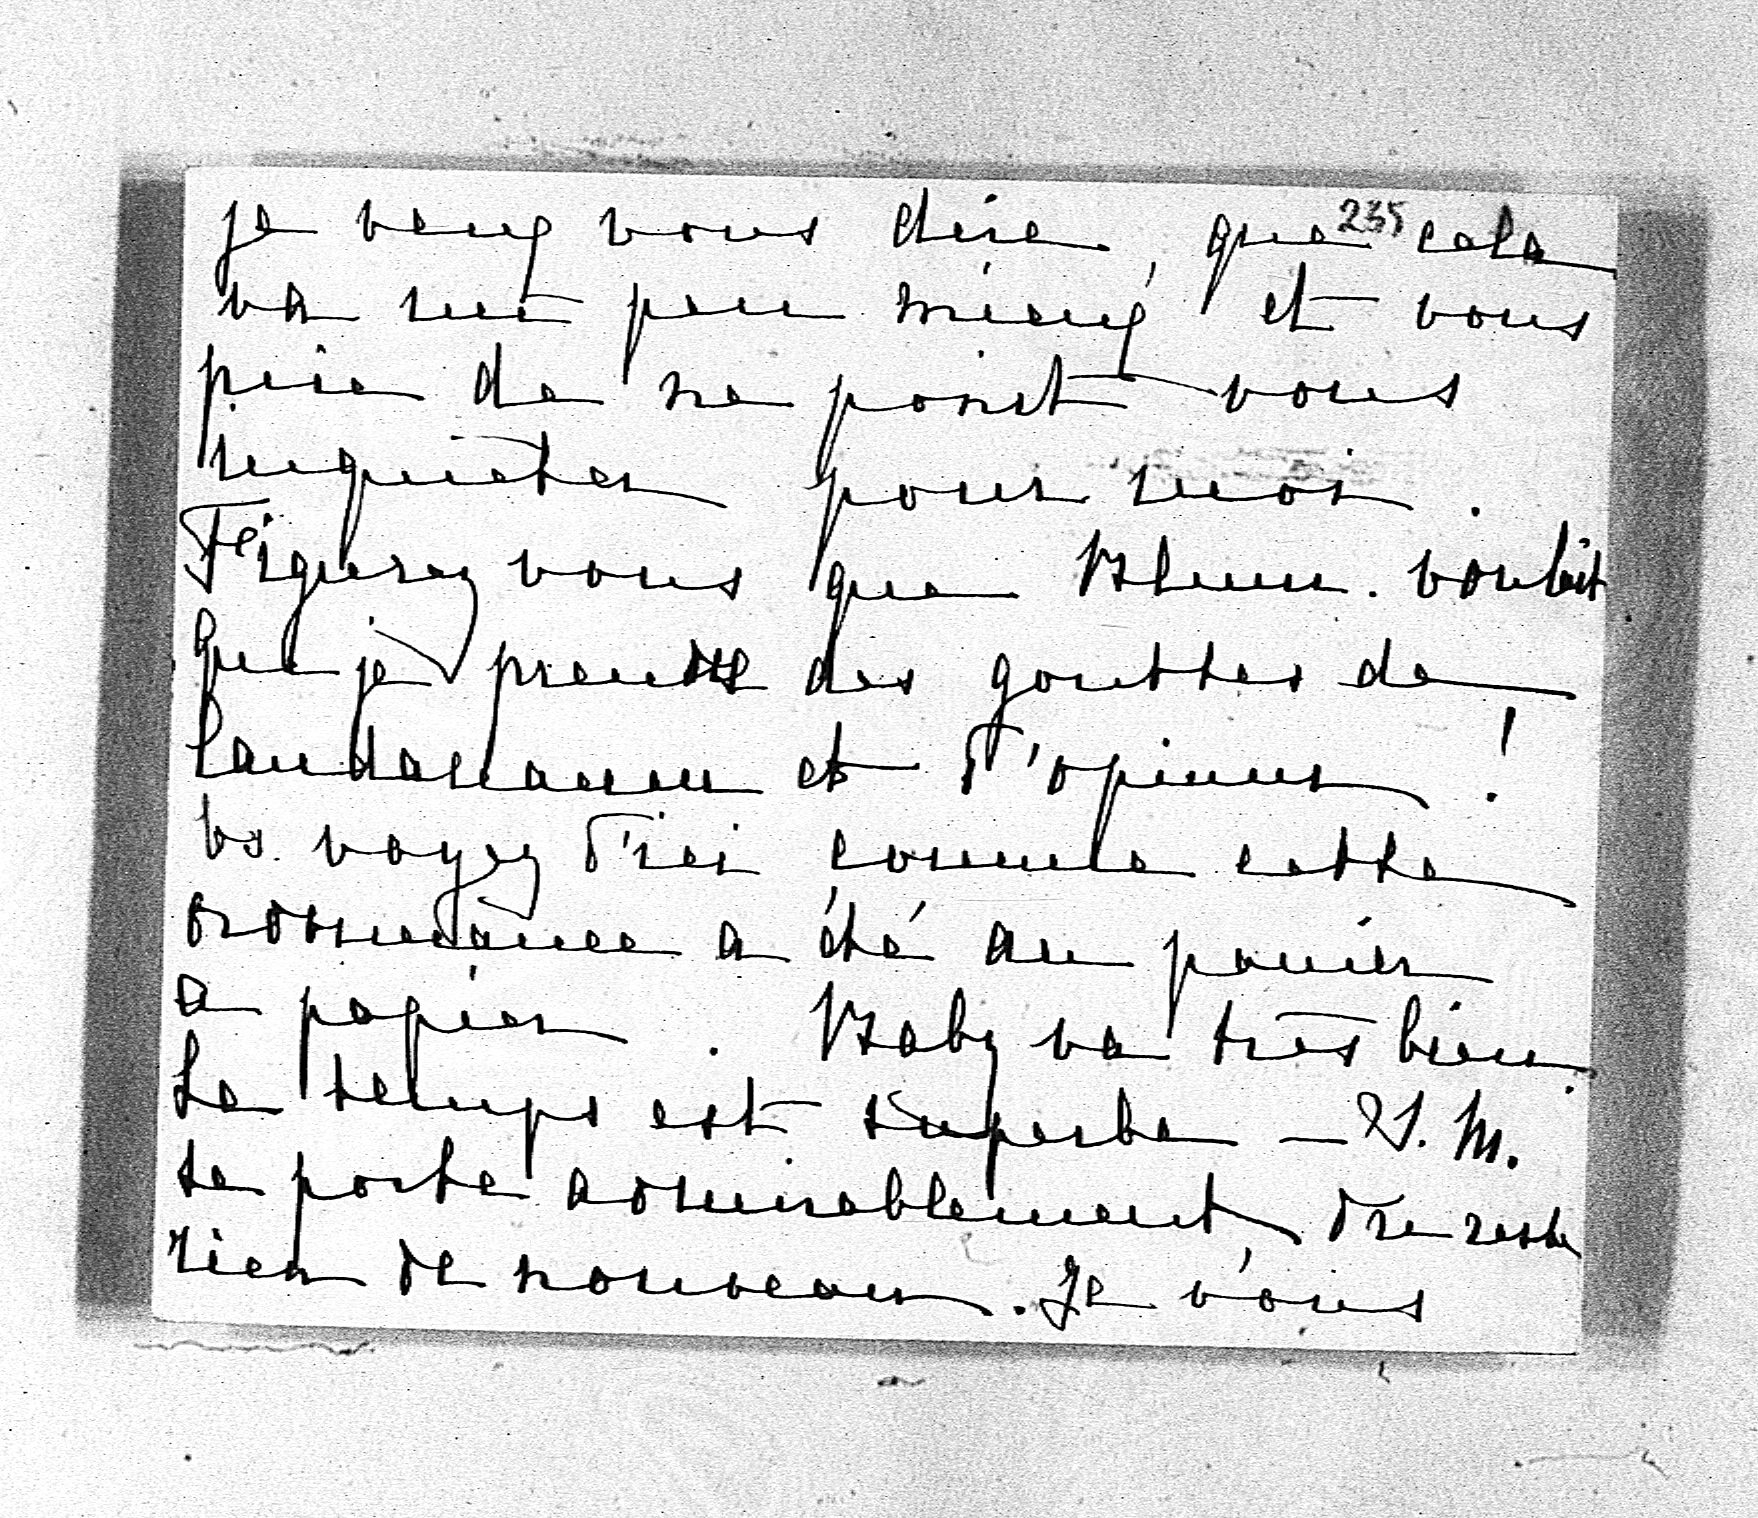 235
je veux vous dire, que cela
va un peu mieux, et vous
prie de ne point vous
inquieter pour moi.
Figurez vous que Blum. voulait
que je prenne des gouttes de
laudanum et d'opium!
Vs. voyez d'ici comme cette
ordonnance a été au panier
a papier. Baby va très bien.
Le temps est superbe – S. M.
se porte admirablement, du reste
rien de nouveau. Je vous